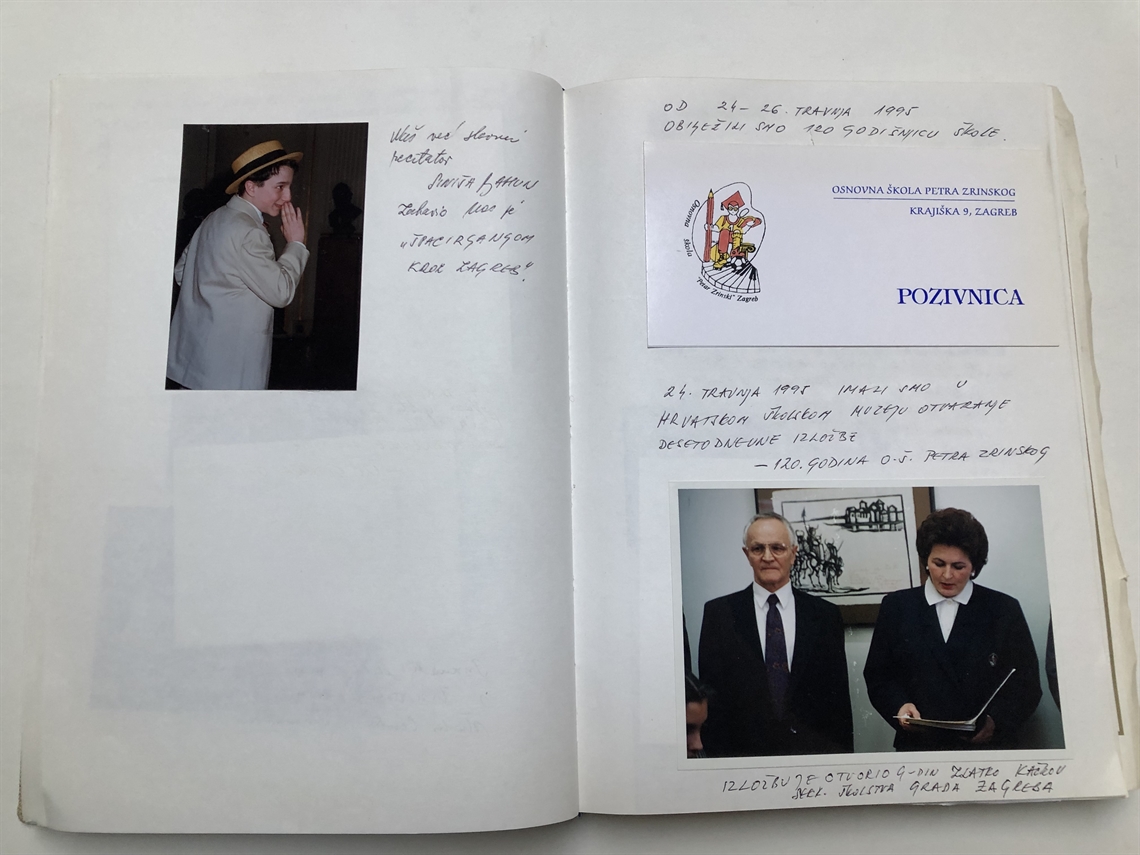 Naš već slavni
recitator
SINIŠA
Zabavio nas je
„ŠPACIRGANGOM
KROZ ZAGREB“
OD 24 – 26. TRAVNJA 1995
OBILJEŽILI SMO 120 GODIŠNJICU ŠKOLE.
OSNOVNA ŠKOLA PETRA ZRINSKOG
KRAJIŠKA 9, ZAGREB
Osnovna škola
"Petar Zrinski" Zagreb
POZIVNICA
24. TRAVNJA 1995 IMALI SMO U
HRVATSKOM ŠKOLSKOM MUZEJU OTVARANJE
DESETODNEVNE IZLOŽBE
– 120. GODINA O.Š. PETRA ZRINSKOG
IZLOŽBU JE OTVORIO G-DIN ZLATKO
SEKR. ŠKOLSTVA GRADA ZAGREBA